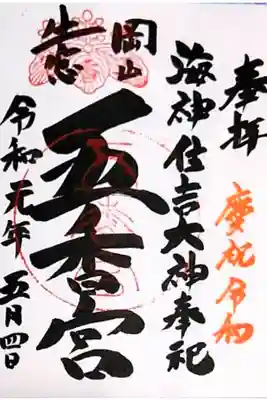 奉拝
慶祝令和
海神住吉大神奉祀
岡山
牛窓
五香宮
令和元年 五月四日